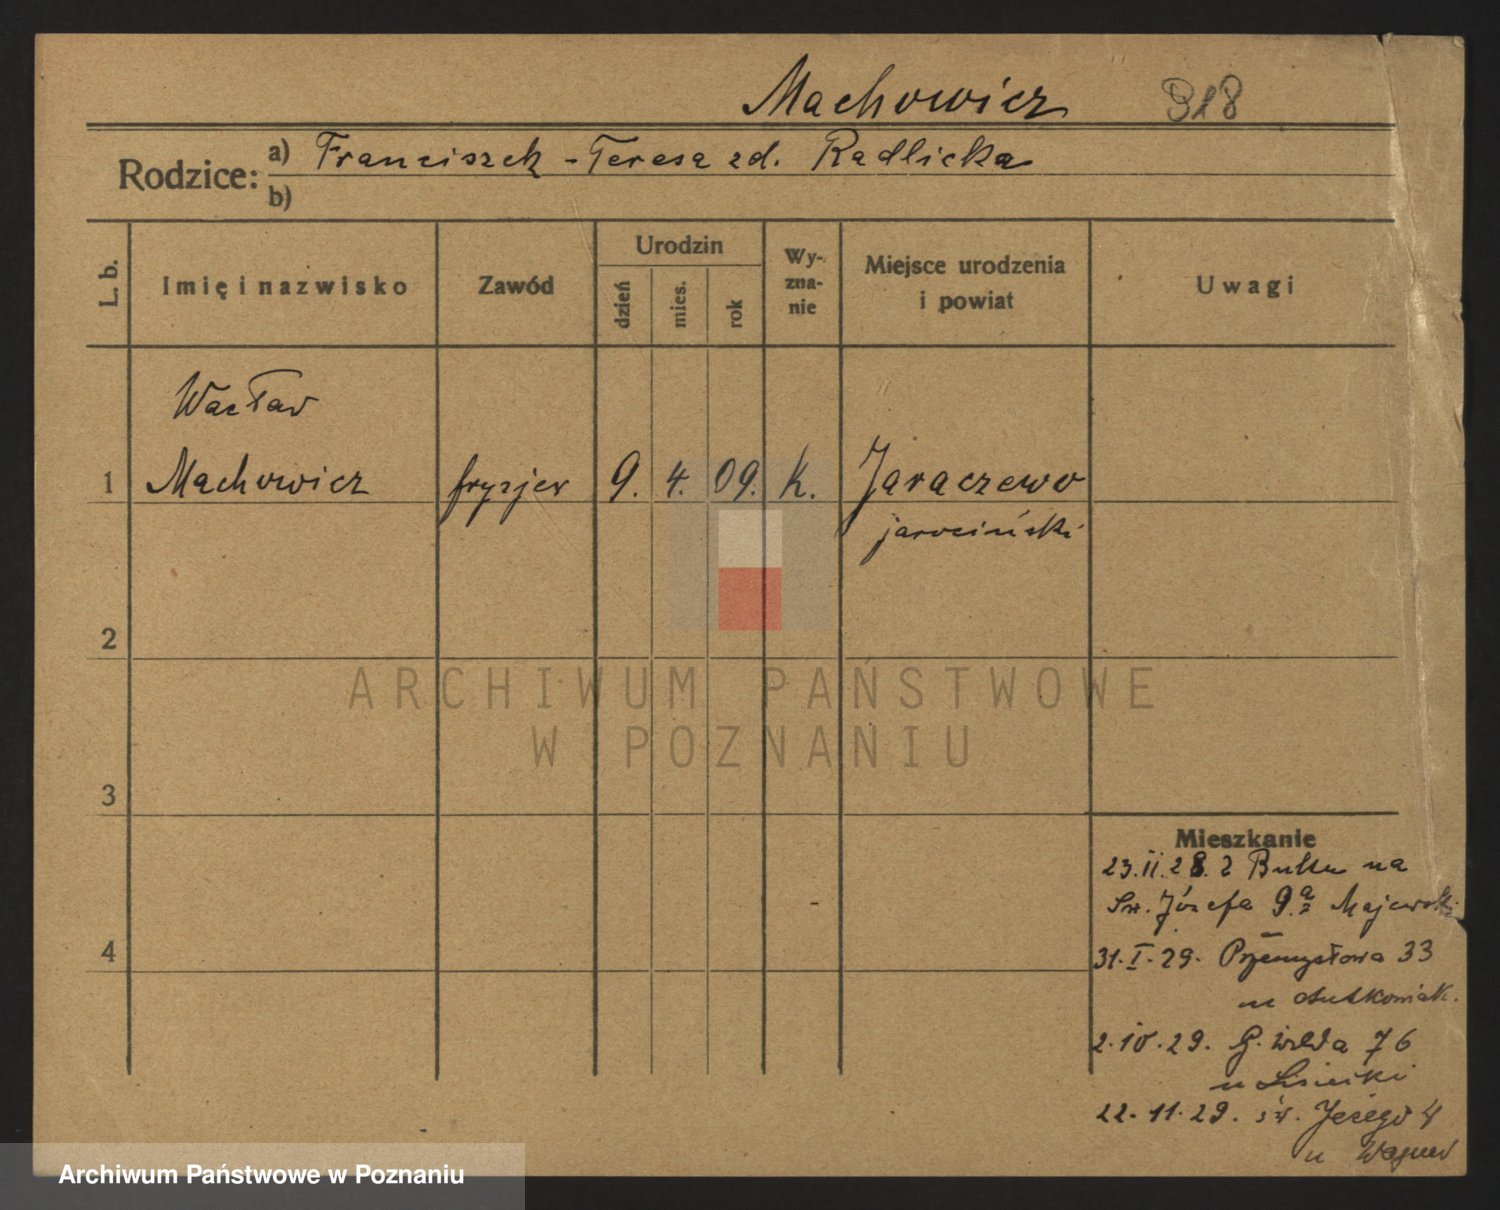 Machowicz 318
Rodzice: a) Franciszek - Teresa zd. Radlicka
b)
L. b. Imię i nazwisko Zawód Urodzin dzień mies. rok Wyznanie Miejsce urodzenia i powiat Uwagi
Wacław
1 Machowicz fryzjer 9. 4. 09. k. Jaraczewo
jarociński
2
ARCHIWUM PAŃSTWOWE
W POZNANIU
3
Mieszkanie
23.II.28. z Buku na
Św. Józefa 9.a Majewski
4
31.I.29. Przemysłowa 33
u
2.10.29. G. Wilda 76
u Lisiecki
22.11.29. św. Jerzego 4
u Wagner
Archiwum Państwowe w Poznaniu